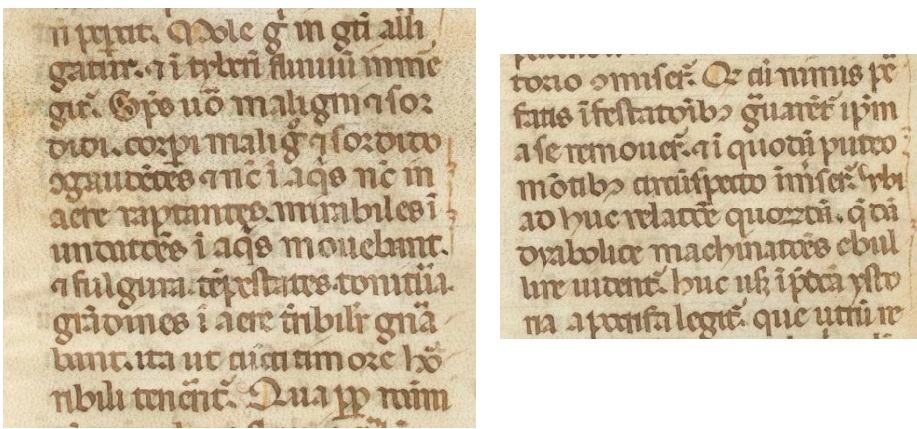 ñ pepcit. Mole g̃ in gñti alli
gatur. ⁊ ĩ tybeří fluuiũ imme
git᷑. Sp̃s uo᷑ maligni ⁊ sor
didi. corp̱i malig̊ ⁊ sordido
ꝯgaudẽtes ⁊ nc̃ ĩ aq̃s nc̃ in
aere raptantes. mirabiles ĩ
undatões ĩ aq̃s mouebant.
⁊ fulgura. tẽpestates. tonitrũa.
grãdines ĩ aere t̃ribilr̃ gñã
bant. ita ut cũcti timore ho᷑
ribili tenẽnt᷑. Qua ꝓp̱ roma̅ni
torio ꝯmiser̃t. Qi᷑ cũ nimis p̃e
fatis ĩfestatõibꝫ g̃uarẽt᷑ ip̃m
a se remouer̃t. ⁊ ĩ quodã puteo
mõtibꝫ circũsepto ĩmiser̃t. vbi
ad huc relatõe quorꝝdã. q̃dã
dyabolice machinatões ebul
lire uident᷑. huc usꝫ ĩ p̃dcã ysto
ria apocrifa legit᷑. que utrũ re